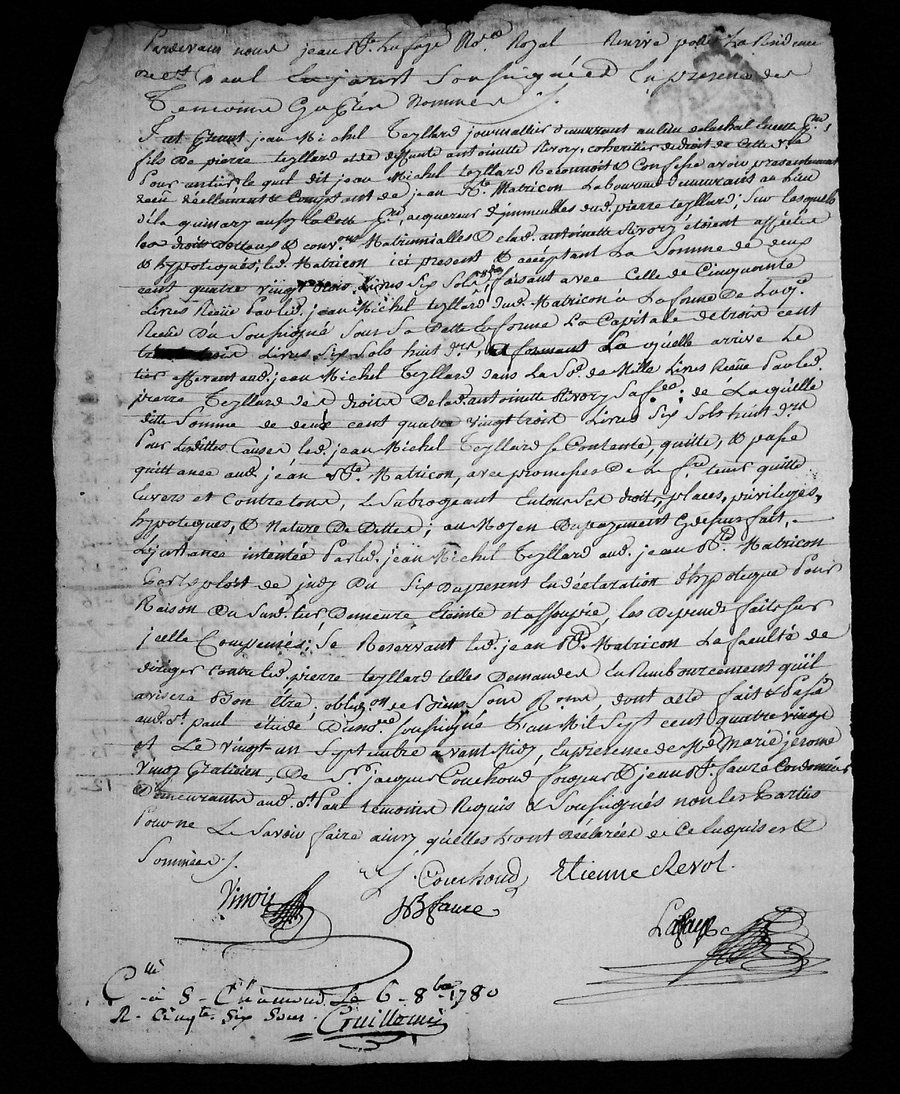 Pardevant nous jean Bte. Lafage Nore. Royal Reservé pour La Residence
de St. paul en jarest Soussigné et En presence des
Temoins Cy après Nommés
fut présent jean Michel Teyllard journallier demeurant au lieu de
fils De pierre teyllard et de deffunte antoinette Rivory, coheritier de droit de Cette
Pour un tier, le quel dit jean Michel teyllard Reconnoit & Confesse avoir presentement
Reçu Réellement & Comptant de jean Bte. Matricon Laboureur demeurans au Lieu
de la quinary aussy acquereur d'immeubles dud. pierre teyllard, Sur lesquels
les droits dottaux & convons. Matrimonialles De lad. antoinette Rivory étoient affectés
& hypotequés; led. Matricon ici present & acceptant La Somme de deux
cent quatre vingt trois Livres Six Sols 8 drs, faisant avec Celle de Cinquante
Livres Reçüe Par led. jean Michel teyllard dud. Matricon à La forme De
Reçue Du Soussigné Sous Sa Datte en forme La Capitale de trois cent
trente trois Livres Six Sols huit drs, formant La quelle arrive Le
tier afferant aud. jean Michel teyllard dans La Se. de Mille Livres Reçüe Par led.
pierre Teyllard des droits De lad. antoinette Rivory Sa fe.; de Laquelle
ditte Somme de deux cent quatre vingt trois Livres Six Sols huit drs
Pour Lesdittes Causes led. jean Michel Teyllard Se Contente, quitte, & passe
quittance aud. jean Bte. Matricon, avec promesses De Le fre. tenir quitte
Envers et Contre tous, Le Subrogeant En tous Ses droits, places, privileges,
hypoteques, & Nature De Dettes; au Moyen Du payement Cy dessus fait,
L'instance intentée Par led. jean Michel Teyllard aud. jean Bte. Matricon
Par Exploit de jeudy Du Six Du present En déclaration d'hypoteque Pour
Raison Du Susd. tier Demeure Eteinte et assoupie, les Depends faits Sur
jcelle Compensés; Se Reservant led. jean Bte. Matricon La faculté de
diriger Contre led. pierre teyllard telles Demandes En Rembourcement qu'il
avisera Bon être. obligon. de Biens Sous Rons, dont acte fait & Passé
aud. St. paul étude Du nore. Soussigné L'an Mil Sept cent quatre vingt
et Le vingt-un Septembre avant Midy, En presence de Me Marie jerome
Vinoy Praticien, De Sr jacques Couchoud forgeur & jean Bt. faure Cordonnier
Demeurants aud. St. Paul temoins Requis & Soussignés non les Parties
Pour ne Le Savoir faire ainsy qu'elles L'ont déclaré de Ce Enquises &
Sommées
Vinoy J. Couchoud Etienne Revol.
JB faure
Lafage
Clé
à S - Chamond Le 6 - 8bre 1780
R - Cinqte Six Sous Guillemin